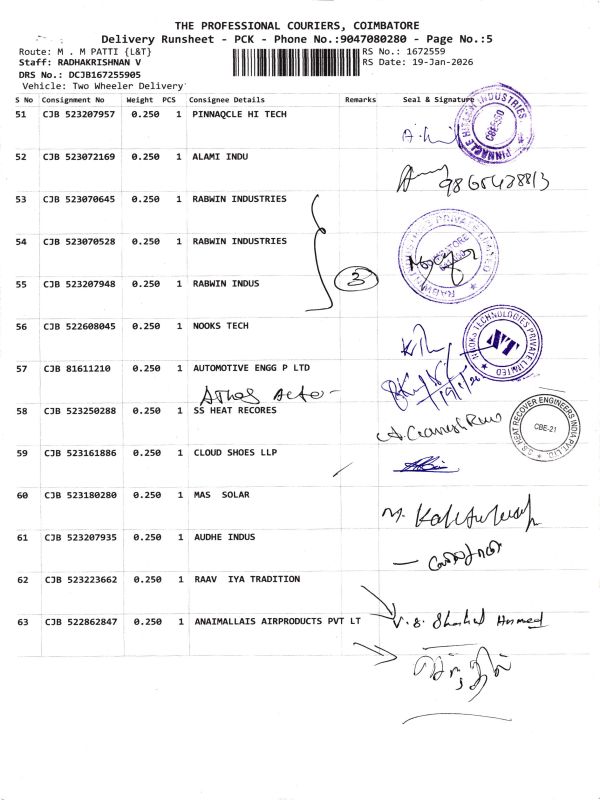 THE PROFESSIONAL COURIERS, COIMBATORE
Delivery Runsheet - PCK - Phone No.:9047080280 - Page No.:5
Route: M . M PATTI {L&T} RS No.: 1672559
Staff: RADHAKRISHNAN V RS Date: 19-Jan-2026
DRS No.: DCJB167255905
Vehicle: Two Wheeler Delivery
S No Consignment No Weight PCS Consignee Details Remarks Seal & Signature
51 CJB 523207957 0.250 1 PINNAQCLE HI TECH
PINNACLE HITECH INDUSTRIES
52 CJB 523072169 0.250 1 ALAMI INDU
53 CJB 523070645 0.250 1 RABWIN INDUSTRIES
54 CJB 523070528 0.250 1 RABWIN INDUSTRIES
55 CJB 523207948 0.250 1 RABWIN INDUS
3
56 CJB 522608045 0.250 1 NOOKS TECH
NOOKS TECHNOLOGIES PRIVATE LIMITED
NT
57 CJB 81611210 0.250 1 AUTOMOTIVE ENGG P LTD
19/1/26
58 CJB 523250288 0.250 1 SS HEAT RECORES
S.S HEAT RECOVER ENGINEERS INDIA PVT. LTD.
CBE-21
59 CJB 523161886 0.250 1 CLOUD SHOES LLP
60 CJB 523180280 0.250 1 MAS SOLAR
61 CJB 523207935 0.250 1 AUDHE INDUS
62 CJB 523223662 0.250 1 RAAV IYA TRADITION
63 CJB 522862847 0.250 1 ANAIMALLAIS AIRPRODUCTS PVT LT